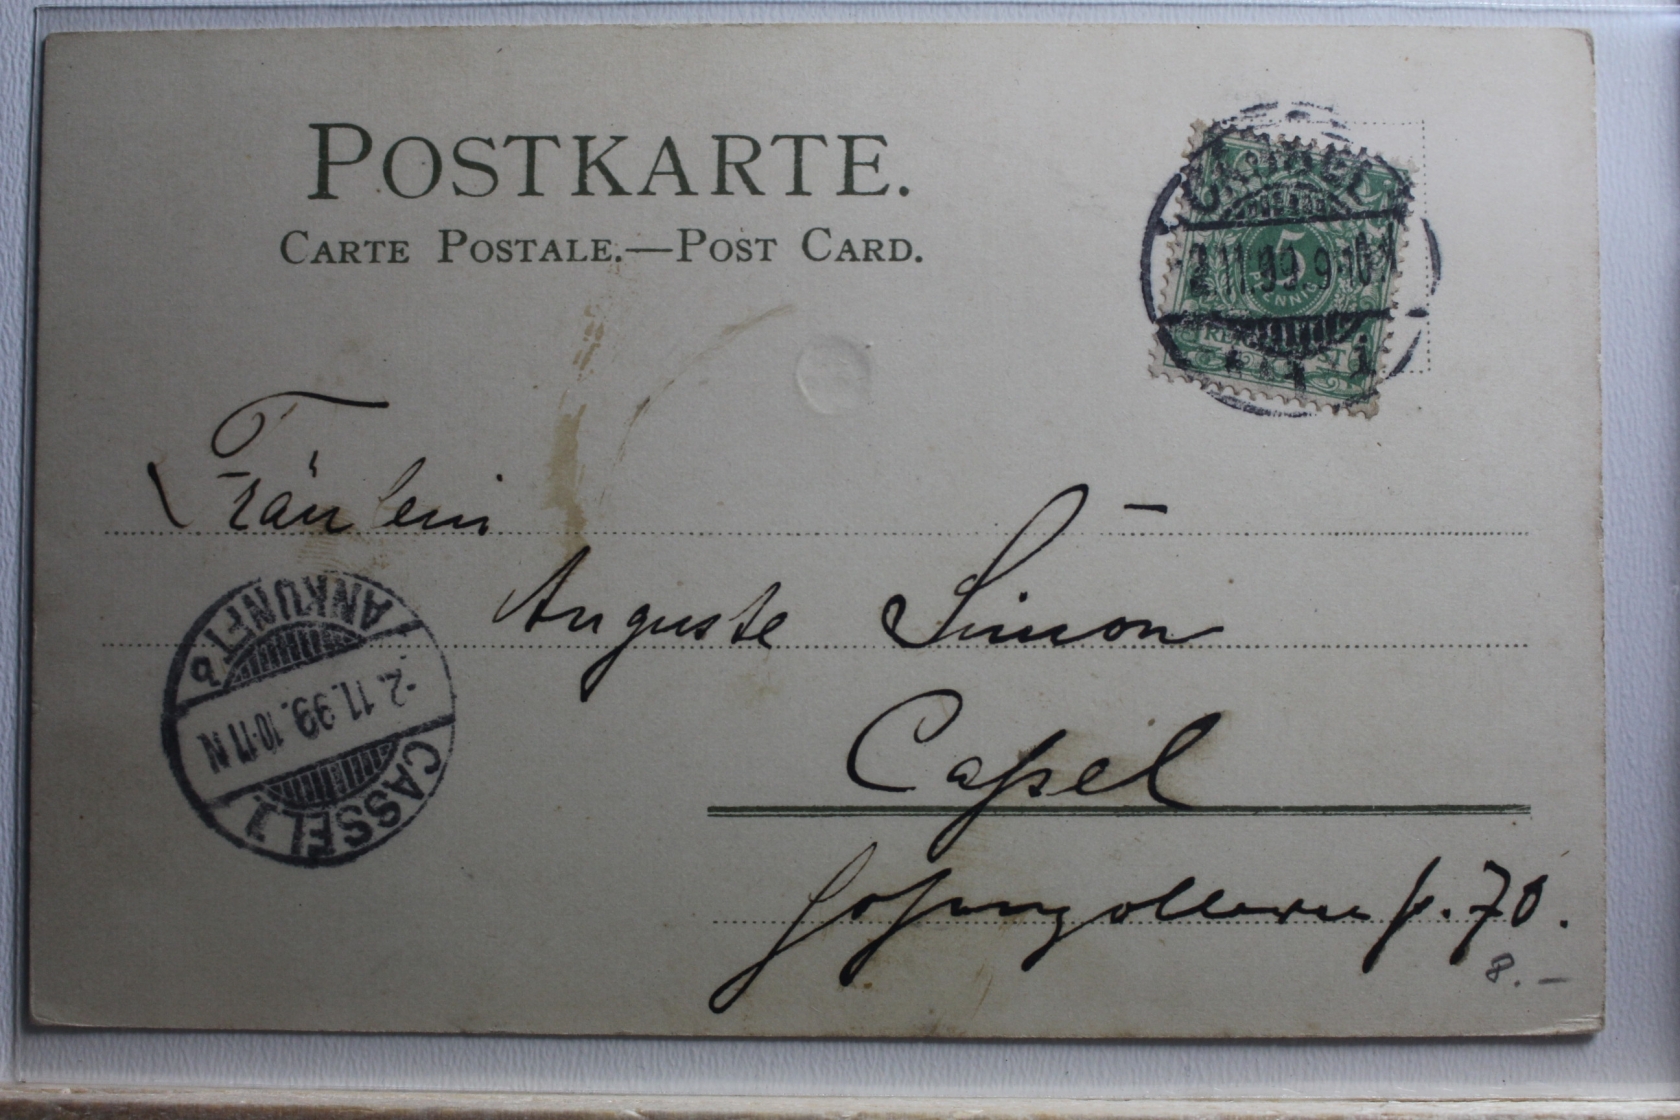 POSTKARTE.
CARTE POSTALE.—POST CARD.
2.11.99.9-10N
5
PFENNIG
REICHSPOST
Fräulein
Auguste Simon
Caßel
Hohenzollernstr. 70.
8.–
CASSEL 1
-2.11.99.10-11N
ANKUNFT